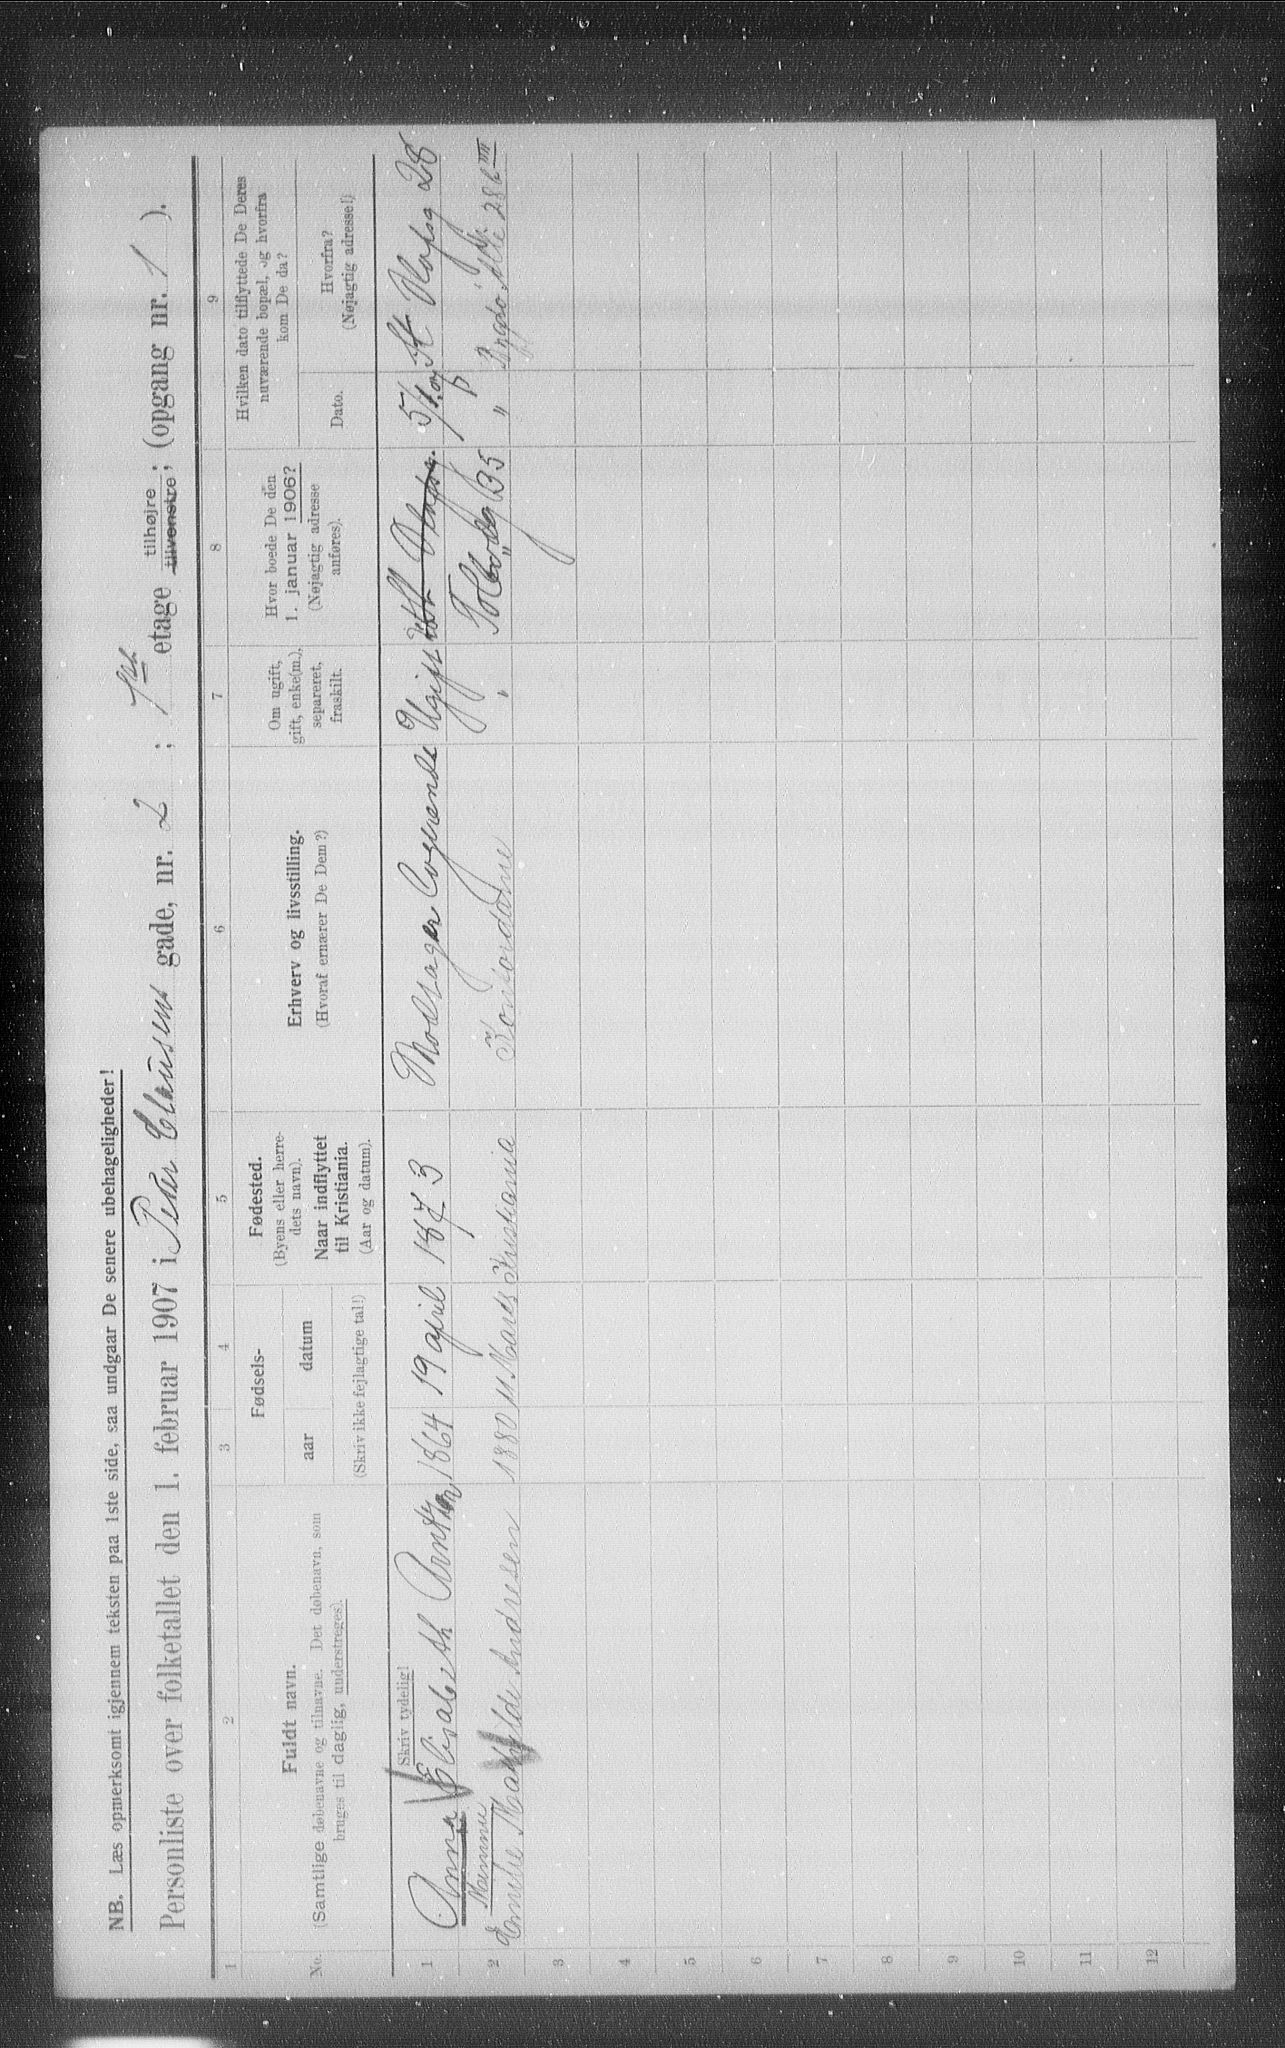 NB. Læs opmerksomt igjennem teksten paa 1ste side, saa undgaar De senere ubehageligheder!
Personliste over folketallet den 1. februar 1907 i Peder Clausens gade, nr. 2 ; 1ste etage tilhøjre ; (opgang nr. 1 ).
tilvenstre
1 2 3 4 5 6 7 8 9
No.
Fuldt navn.
(Samtlige døbenavne og tilnavne. Det døbenavn, som
bruges til daglig, understreges).
Fødsels-
aar datum
(Skriv ikke fejlagtige tal!)
Fødested.
(Byens eller herre-
dets navn).
Naar indflyttet
til Kristiania.
(Aar og datum).
Erhverv og livsstilling.
(Hvoraf ernærer De Dem?)
Om ugift,
gift, enke(m.),
separeret,
fraskilt.
Hvor boede De den
1. januar 1906?
(Nøjagtig adresse
anføres).
Hvilken dato tilflyttede De Deres
nuværende bopæl, og hvorfra
kom De da?
Dato.
Hvorfra?
(Nøjagtig adresse!)
Skriv tydelig!
1 Anna Elisabeth 1864 19 april 1873 Modtager Logerende Ugift St Olafsg 28
Toldbodg 35
2 Emilie Andresen 1880 11 Marts Kristiania Kontordame " " " Bygdø Alle 28 b
3
4
5
6
7
8
9
10
11
12